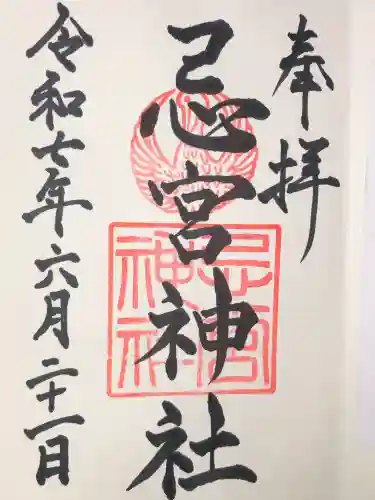 奉拝
忌宮神社
令和七年六月二十一日
忌宮
神社